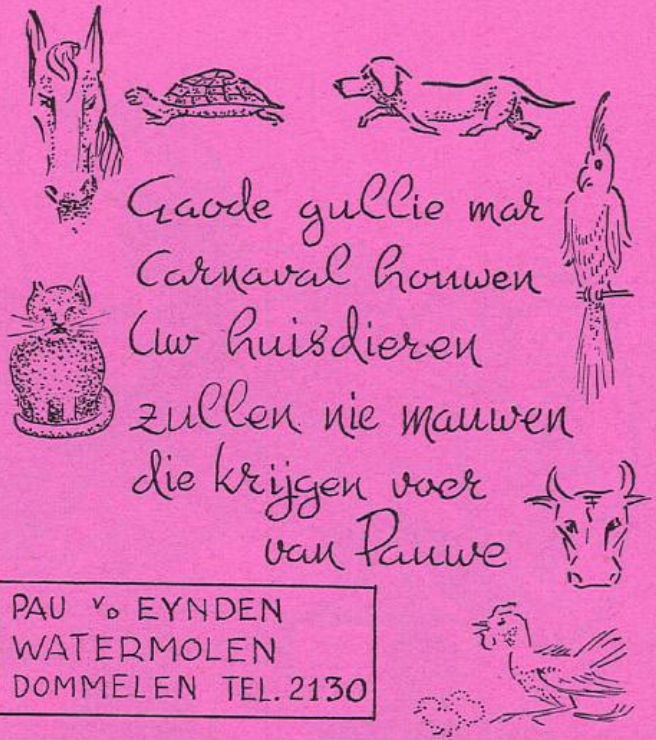 Gaode gullie mar
Carnaval houwen
Uw huisdieren
zullen nie mauwen
die krijgen voer
van Pauwe
PAU v.d EYNDEN
WATERMOLEN
DOMMELEN TEL. 2130